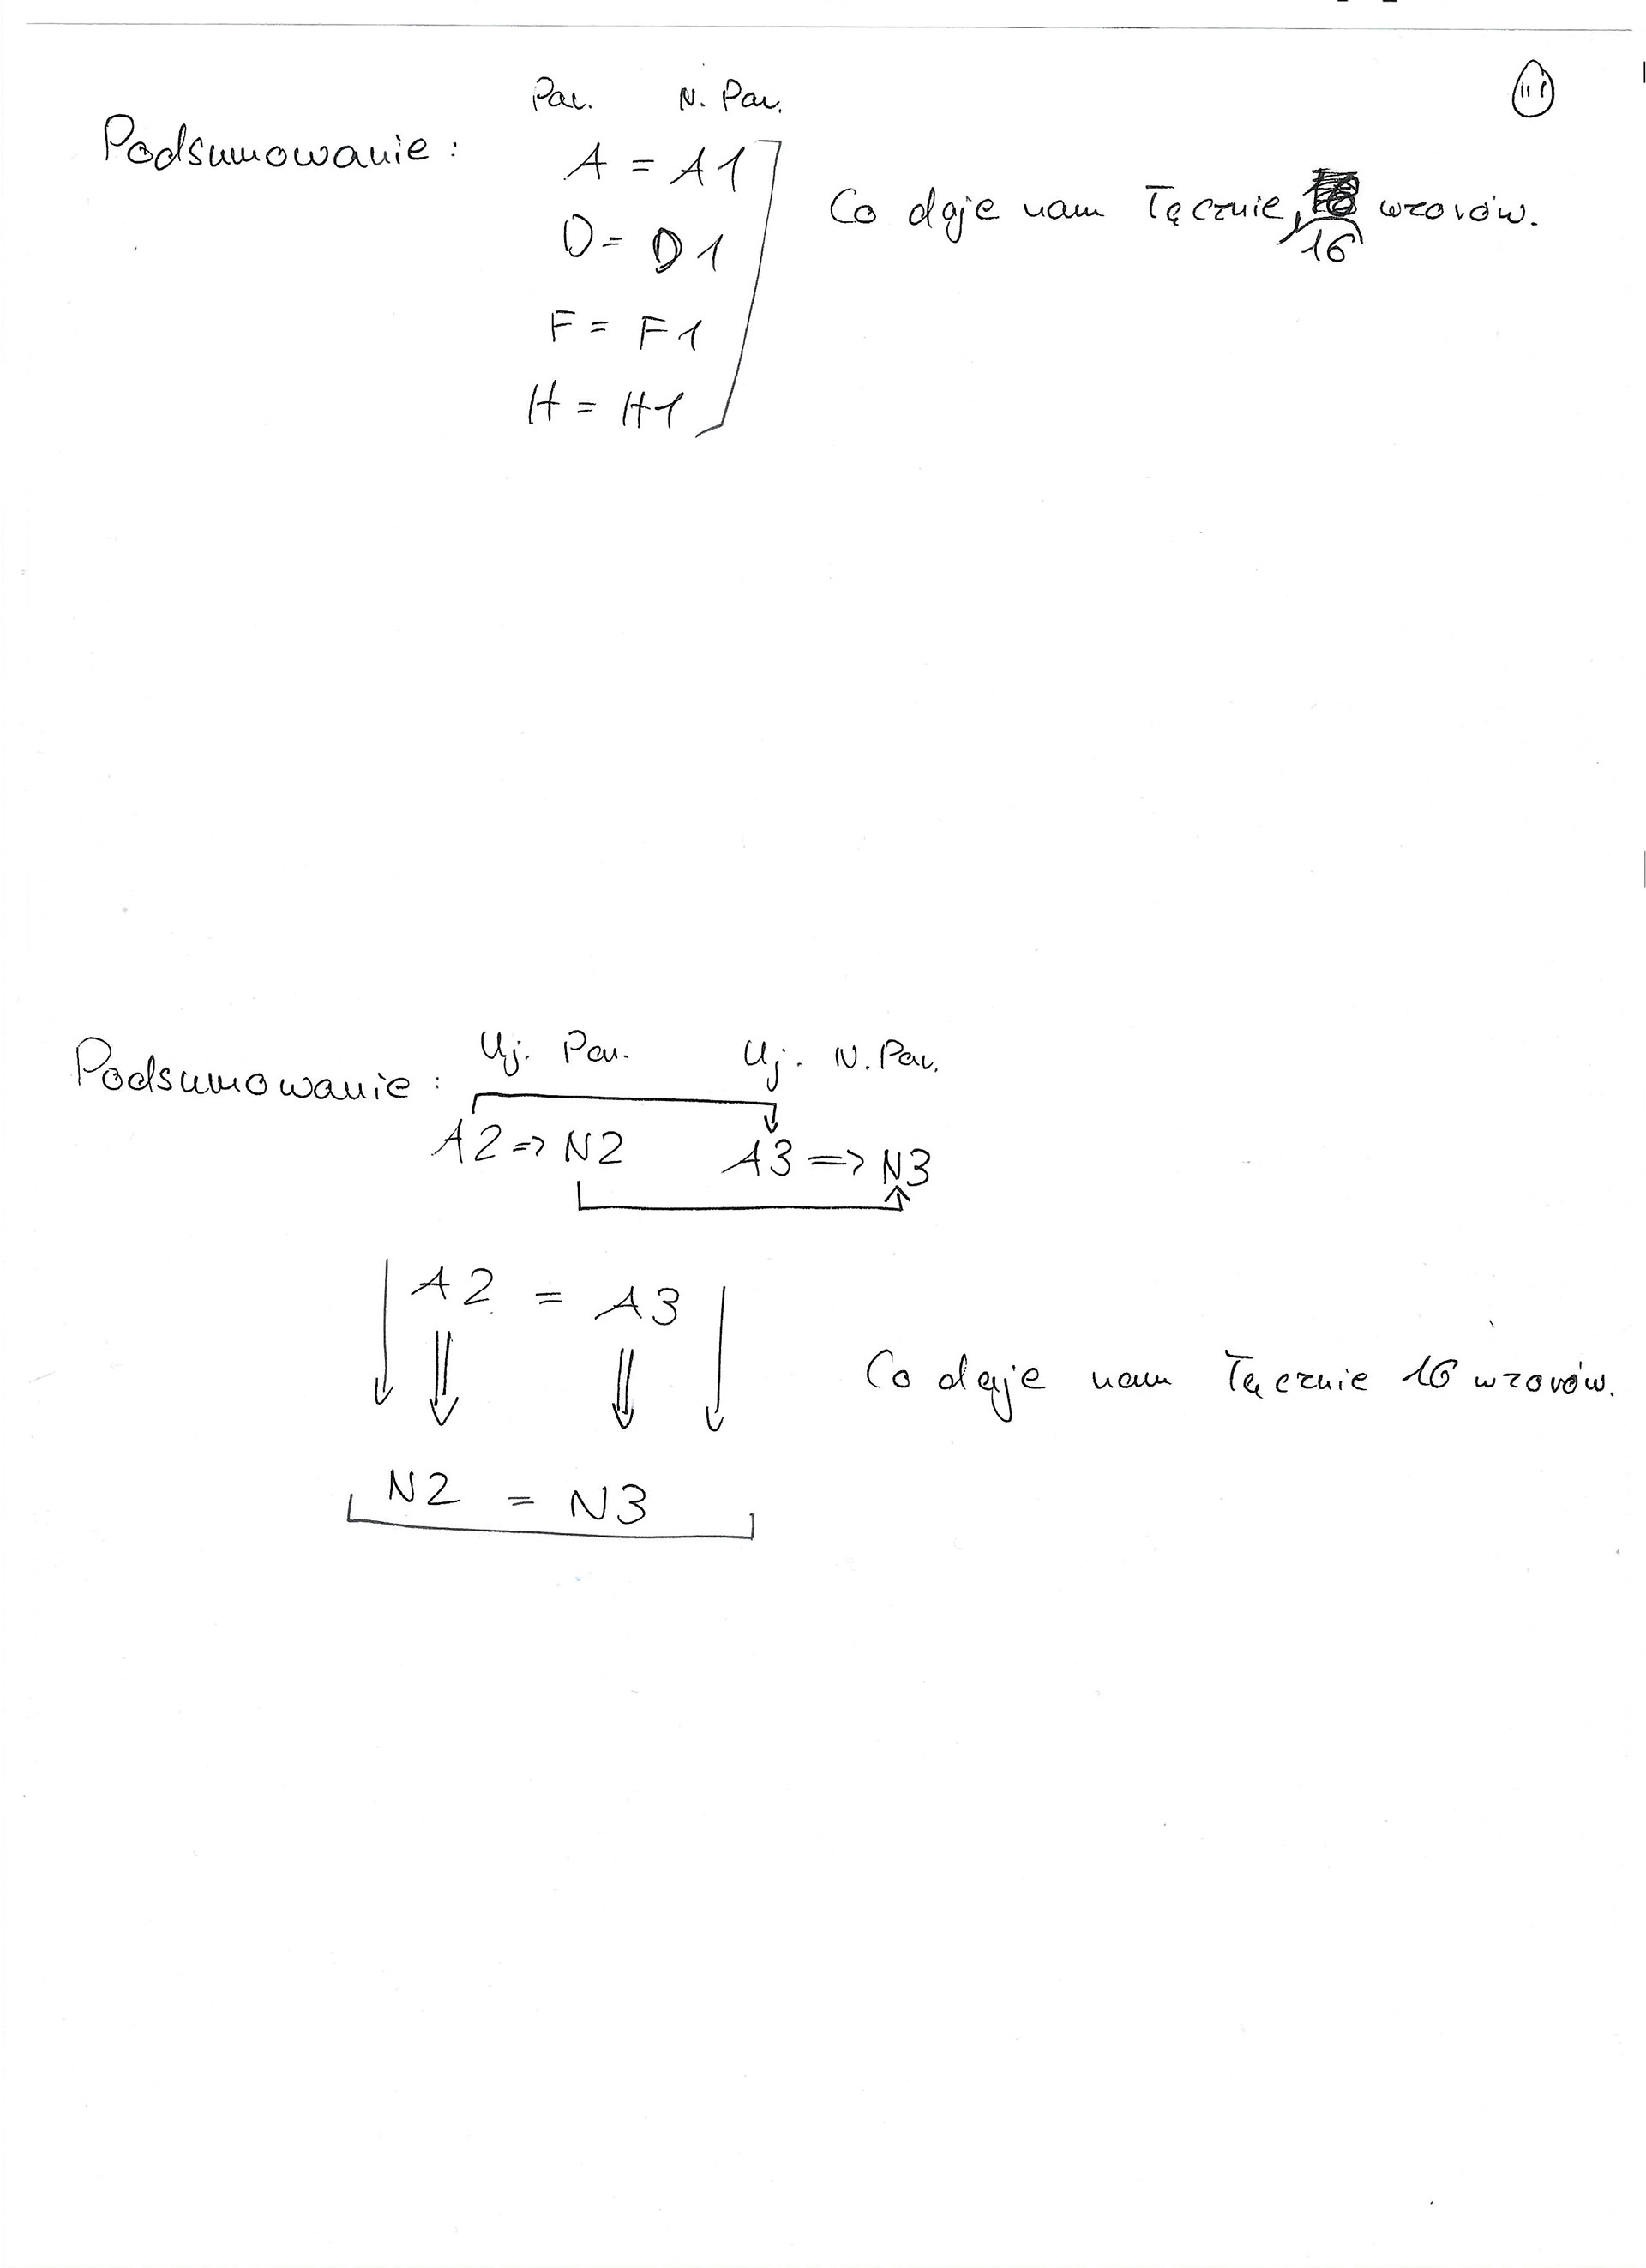 Par. N. Par.
Podsumowanie : A = A1
D = D1
Co daje nam łącznie 16 wzorów.
F = F1
H = H1
Podsumowanie : Uj. Par. Uj. N. Par.
A2 => N2 A3 => N3
A2 = A3
Co daje nam łącznie 16 wzorów.
N2 = N3